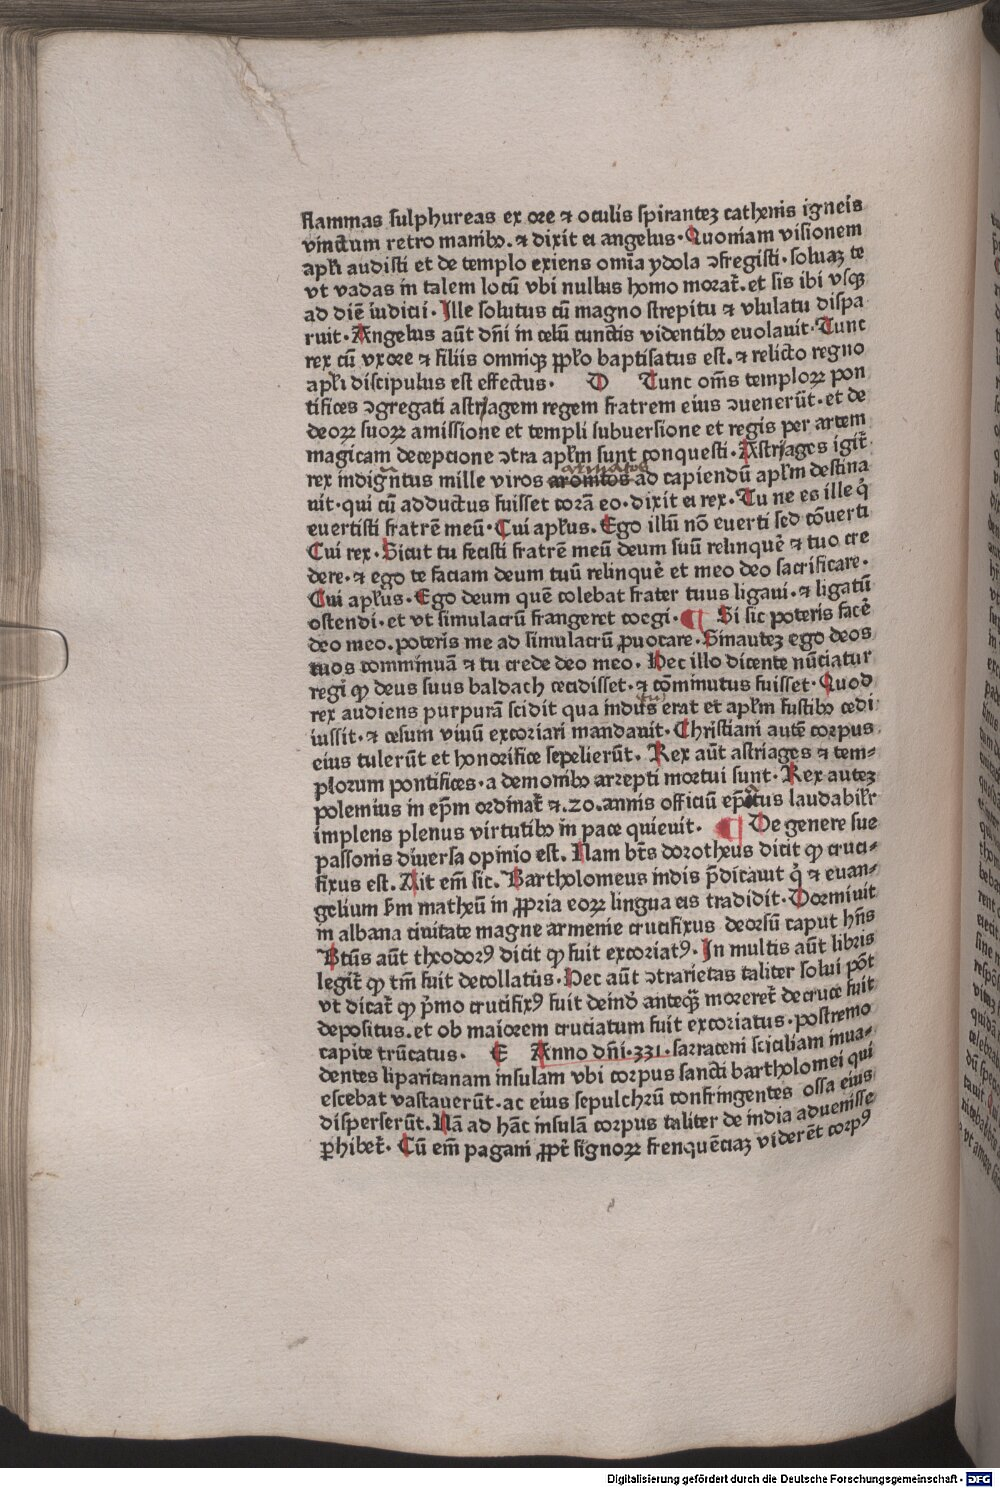 flammas sulphureas ex ore ⁊ oculis spirantez cathenis igneis
vinctum retro manibꝰ. ⁊ dixit ei angelus. Quoniam visionem
apłi audisti et de templo exiens omīa ydola ꝯfregisti. soluaꝫ te
vt vadas in talem locū vbi nullus homo morat̄. et sis ibi vsqꝫ
ad diē iudicii. Ille solutus cū magno strepitu ⁊ vlulatu dispa
ruit. Angelus aūt dn̄i in celū cunctis videntibꝰ euolauit. Tunc
rex cū vxore ⁊ filiis omniqꝫ ꝓpło baptisatus est. ⁊ relicto regno
apłi discipulus est effectus. D Tunc om̄s temploꝝ pon
tifices ꝯgregati astriagem regem fratrem eius ꝯuenerūt. et de
deoꝝ suoꝝ amissione et templi subuersione et regis per artem
magicam decepcione ꝯtra apłm sunt conquesti. Astriages igit̄
rex indigntus mille viros aromtos armatos ad capiendū apłm destina
uit. qui cū adductus fuisset corā eo. dixit ei rex. Tu ne es ille q̇
euertisti fratrē meū. Cui apłus. Ego illū nō euerti sed cōuerti
Cui rex. Sicut tu fecisti fratrē meū deum suū relinquē ⁊ tuo cre
dere. ⁊ ego te faciam deum tuū relinquē et meo deo sacrificare.
Cui apłus. Ego deum quē colebat frater tuus ligaui. ⁊ ligatū
ostendi. et vt simulacrū frangeret coegi. ¶ Si sic poteris facē
deo meo. poteris me ad simulacrū ꝓuocare. Sinautez ego deos
tuos comminuā ⁊ tu crede deo meo. Hec illo dicente nūciatur
regi ꝙ deus suus baldach cecidisset. ⁊ cōminutus fuisset. Quod
rex audiens purpurā scidit qua indutus erat et apłm fustibꝰ cedi
iussit. ⁊ cesum viuū excoriari mandauit. Christiani autē corpus
eius tulerūt et honorifice sepelierūt. Rex aūt astriages ⁊ tem⸗
plorum pontifices. a demonibꝰ arrepti mortui sunt. Rex autez
polemius in ep̄m ordinat̄ ⁊. 20. annis officiū ep̄atus laudabilr̄
implens plenus virtutibꝰ in pace quieuit. ¶ De genere sue
passionis diuersa opinio est. Nam bt̄s dorotheus dicit ꝙ cruci⸗
fixus est. Ait em̄ sic. Bartholomeus indis p̄dicauit q̇ ⁊ euan⸗
gelium ẜm matheū in ꝓpria eoꝝ lingua eis tradidit. Dormiuit
in albana ciuitate magne armenie crucifixus deorsū caput hn̄s
Btūs aūt theodorꝰ dicit ꝙ fuit excoriatꝰ. In multis aūt libris
legit̄ ꝙ tm̄ fuit decollatus. Hec aūt ꝯtrarietas taliter solui pōt
vt dicat̄ ꝙ p̄mo crucifixꝰ fuit deinde anteqꝫ moreret̄ de cruce fuit
depositus. et ob maiorem cruciatum fuit excoriatus. postremo
capite trūcatus. E Anno dn̄i. 331. sarraceni sciciliam inua⸗
dentes liparitanam insulam vbi corpus sancti bartholomei qui
escebat vastauerūt. ac eius sepulchrū confringentes ossa eius
disperserūt. Nā ad hāc insulā corpus taliter de india aduenisse
ꝑhibet̄. Cū em̄ pagani ꝓpt̄ signoꝝ frenquēciaꝫ viderēt corpꝰ
Digitalisierung gefördert durch die Deutsche Forschungsgemeinschaft - DFG